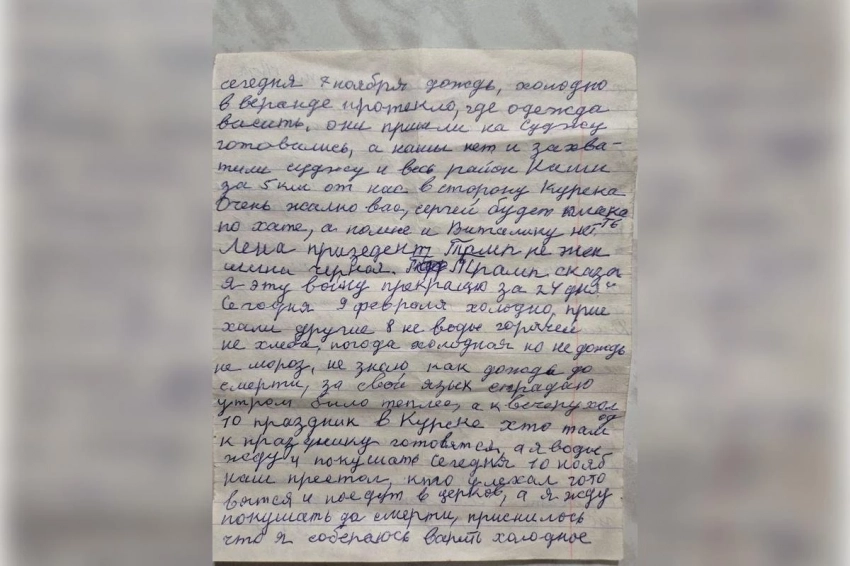 сегодня 7 ноября дождь, холодно
в веранде протекло, где одежда
васить, они пришли на Суджу
готовились, а нашы нет и захва-
тили суджу и весь район Наши
за 5 км от нас в сторону Курска
Очень жалко вас, сергей будет плака
ть
по хате, а по мне и Виталику нет
Лена президент Трмп не жен
шина чурная. Трамп сказа
Я эту войну прекращю за 24 дня"
Сегодня 9 февраля холодно, прие
хали другие 8 не воды горячей
не хлеба, погода холодная но не дождь
не мороз, не знаю как дождь до
смерти, за свой язык страдаю
утром было теплее, а к вечеру хол
од
10 праздник в Курске хто там
к празднику готовятся, а я воды
жду и покушать Сегодня 10 нояб
наш престол, кто уехал гото
вются и поедут в церков, а я жду
покушать до смерти, приснилось
что я собераюсь варить холодное